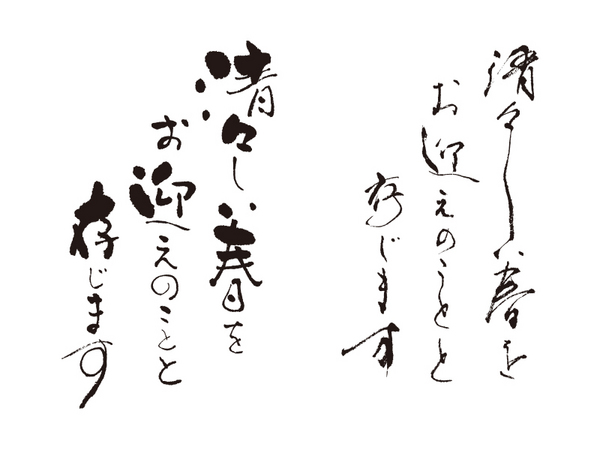 清々しい春を
お迎えのことと
存じます
清々しい春を
お迎えのことと
存じます